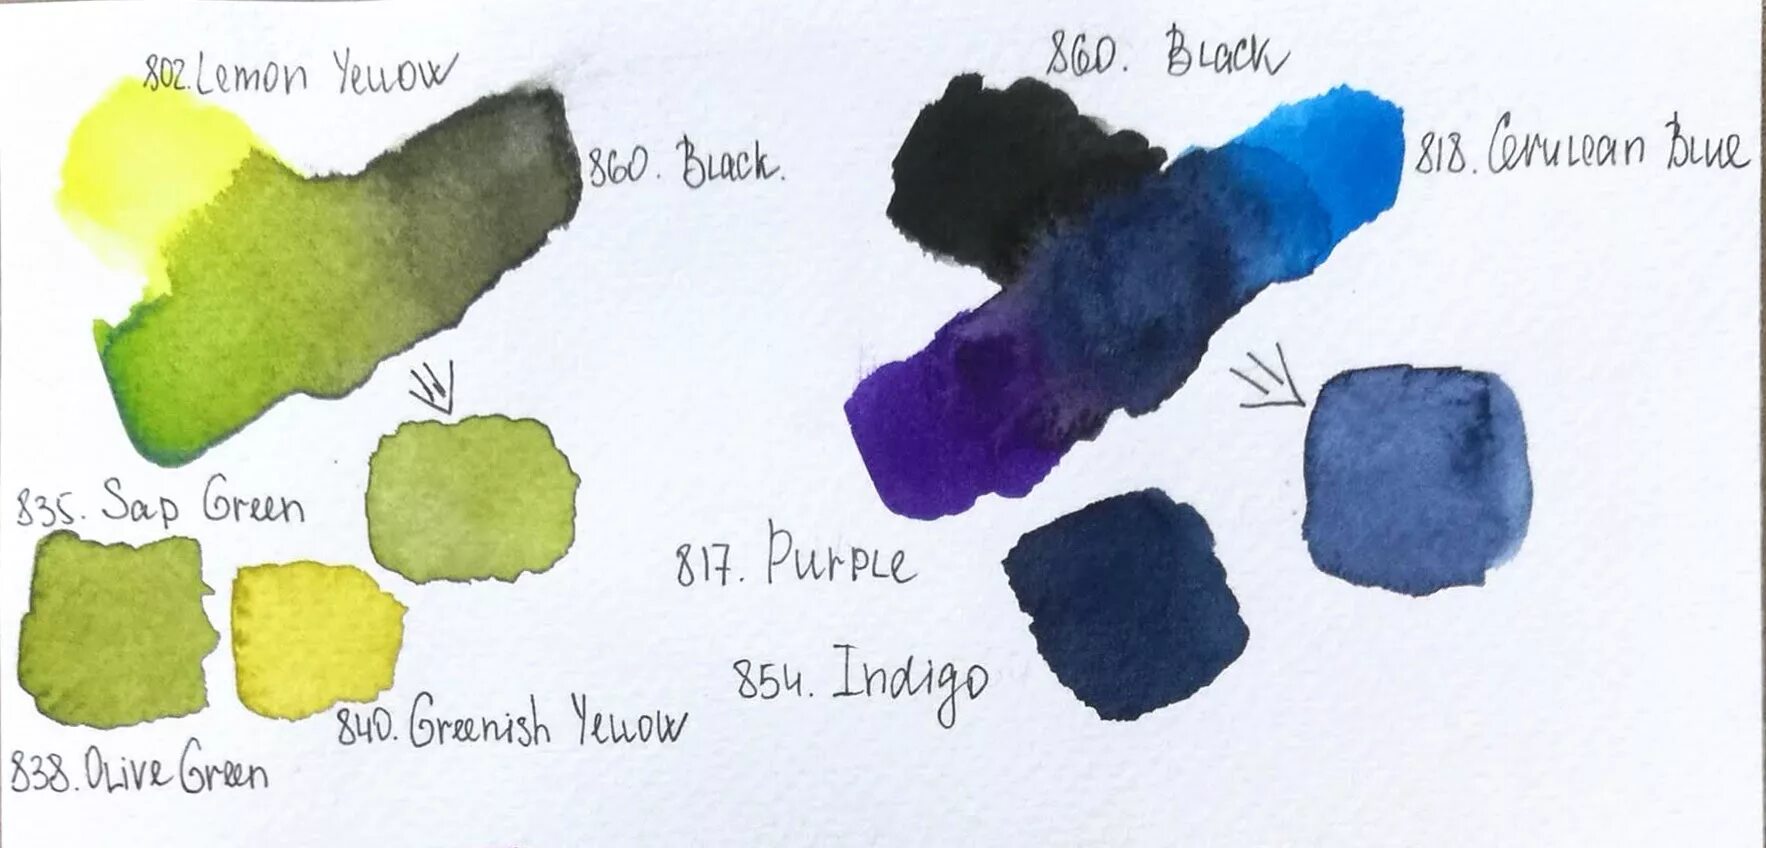 802. Lemon Yellow
860. Black.
835. Sap Green
838. Olive Green
840. Greenish Yellow
860. Black
818. Cerulean Blue
817. Purple
854. Indigo